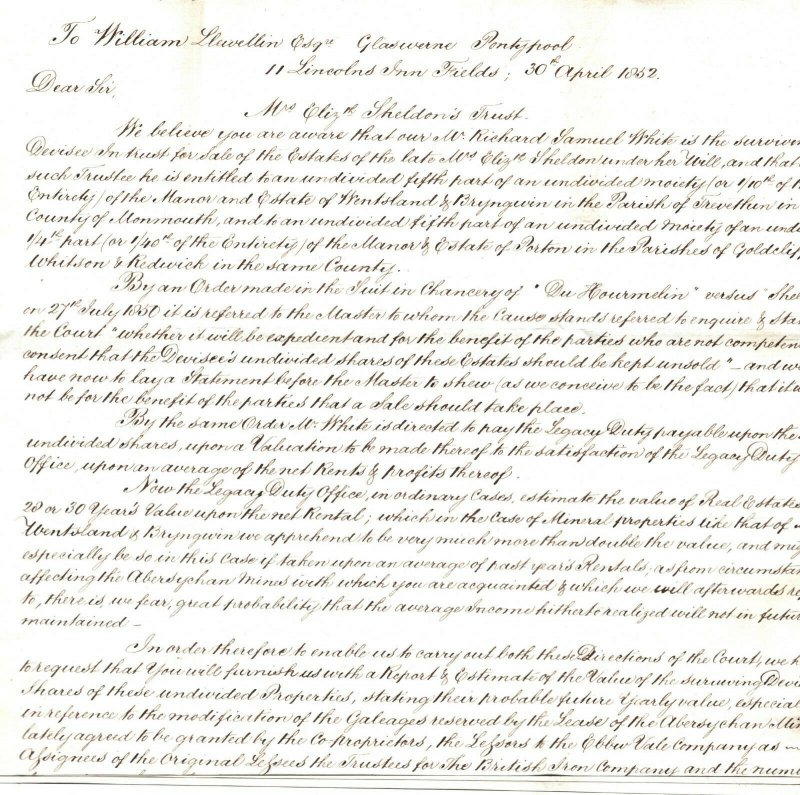 To William Llewellin Esqre Glaswerne Pontypool
11 Lincolns Inn Fields; 30th April 1852.
Dear Sir,
Mrs Elizth Sheldon's Trust.
We believe you are aware that our Mr. Richard Samuel White is the survivin
Devisee In trust for sale of the Estates of the late Mrs Elizth Sheldon under her Will, and that
such Trustee he is entitled to an undivided fifth part of an undivided moiety (or 1/10th of
Entirety) of the Manor and Estate of Wentsland & Bryngwin in the Parish of Trevethin in
County of Monmouth, and to an undivided fifth part of an undivided moiety of an undi
1/4th part (or 1/40th of the Entirety) of the Manor & Estate of Porton in the Parishes of Goldcliff
Whitson & Redwick in the same County.
By an Order made in the Suit in Chancery of "Du Hourmelin" versus "She
on 27th July 1850 it is referred to the Master to whom the Cause stands referred to enquire & sta
the Court "whether it will be expedient and for the benefit of the parties who are not competen
consent that the Devisee's undivided shares of these Estates should be kept unsold" – and we
have now to lay a Statement before the Master to shew (as we conceive to be the fact) that it
not be for the benefit of the parties that a Sale should take place.
By the same Order Mr. White is directed to pay the Legacy Duty payable upon the
undivided shares, upon a Valuation to be made thereof to the satisfaction of the Legacy Duty
Office, upon an average of the net Rents & profits thereof.
Now the Legacy Duty Office, in ordinary Cases, estimate the value of Real Estates
28 or 30 Year's Value upon the net Rental; which in the Case of Mineral properties like that of
Wentsland & Bryngwin we apprehend to be very much more than double the value, and mig
especially be so in this case if taken upon an average of past year's Rentals, as from circumstan
affecting the Abersychan Mines with which you are acquainted & which we will afterwards re
to, there is, we fear, great probability that the average income hitherto realized will not in futur
maintained –
In order therefore to enable us to carry out both these Directions of the Court, we
to request that You will furnish us with a Report & Estimate of the Value of the surviving Devi
Shares of these undivided Properties, stating their probable future Yearly value, especial
in reference to the modification of the Galeages reserved by the Lease of the Abersychan Min
lately agreed to be granted by the Co-proprietors, the Lessors to the Ebbw Vale Company as –
Assignees of the Original Lessees the Trustees for The British Iron Company and the num